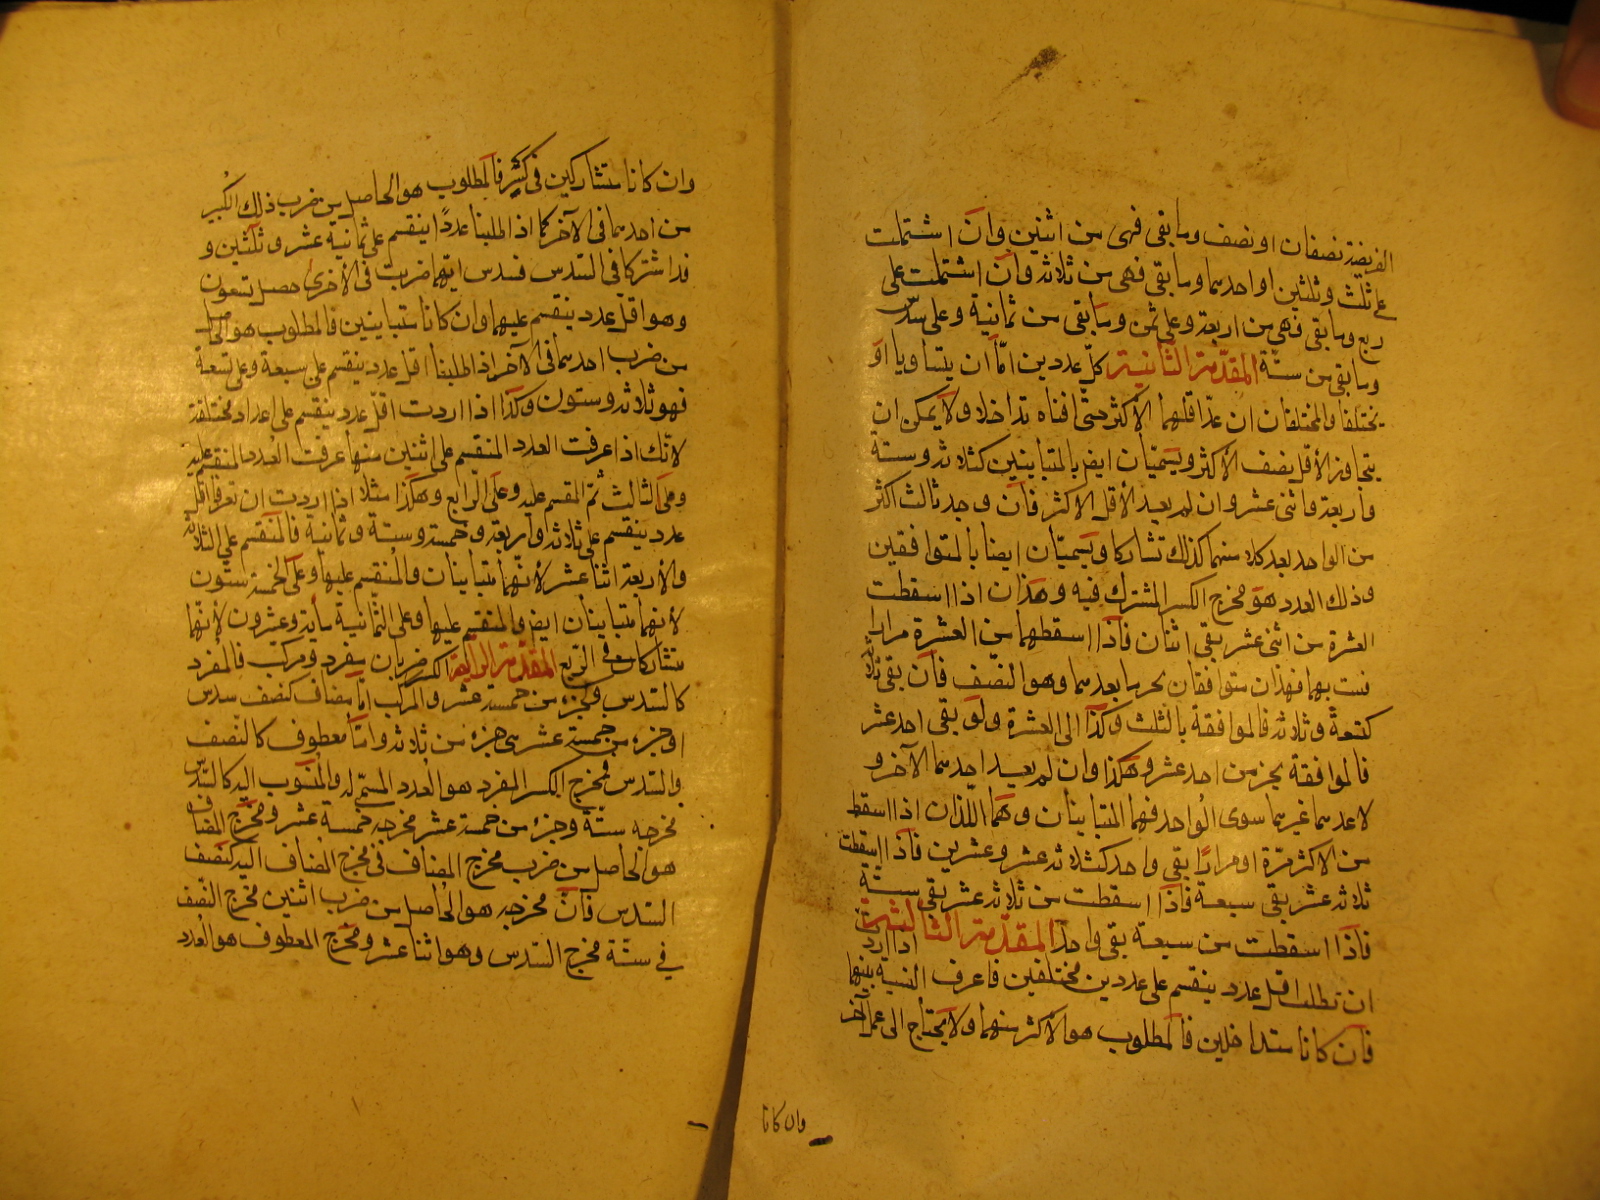 الفريضة نصفان او نصف وما بقى فهى من اثنين وان اشتملت
على ثلث وثلثين او احدهما وما بقى فهى من ثلاثة وان اشتملت على
ربع وما بقى فهى من اربعة وعلى ثمن وما بقى من ثمانية وعلى سدس
وما بقى من ستة المقدمة الثانية كل عددين اما ان يتساويا او
يختلفا والمختلفان ان عد اقلهما الاكثر حتى افناه تداخلا ولا يمكن ان
يتجاوز الاقل نصف الاكثر ويسميان ايض بالمتباينين كثلاثة وستة
واربعة واثنى عشر وان لم يعد الاقل الاكثر فان وجد ثالث اكثر
من الواحد يعد كلا منهما كذلك تشاركا ويسميان ايضا بالمتوافقين
وذلك العدد هو مخرج الكسر المشترك فيه وهذان اذا اسقطت
العشرة من اثنى عشر بقى اثنان فاذا اسقطهما من العشرة مرارا
فنيت بهما فهذان متوافقان بحر ما يعدهما وهو النصف فان بقى ثلاثة
كتسعة وثلاثة فالموافقة بالثلث وكذا الى العشرة ولو بقى احد عشر
فالموافقة بجزء من احد عشر وهكذا وان لم يعد احدهما الآخر و
لا عدهما غيرهما سوى الواحد فهما المتباينان وهما اللذان اذا اسقط
من الاكثر مرة او مرارا بقى واحد كثلاثة عشر وعشرين فاذا اسقطت
ثلاثة عشر بقى سبعة فاذا اسقطت من ثلاثة عشر بقى ستة
فاذا اسقطت من سبعة بقى واحد المقدمة الثالثة اذا اردت
ان تطلب اقل عدد ينقسم على عددين مختلفين فاعرف النسبة بينهما
فان كانا متداخلين فالمطلوب هو الاكثر منهما ولا يحتاج الى عمل آخر
وان كانا
وان كانا متشاركين فى كسر فالمطلوب هو الحاصل من ضرب ذلك الكسر
من احدهما فى الآخر كما اذا طلبنا عددا ينقسم على ثمانية عشر وثلثين و
قد اشتركا فى السدس فسدس ايهما ضربت فى الاخرى حصل تسعون
وهو اقل عدد ينقسم عليهما وان كانا متباينين فالمطلوب هو الحاصل
من ضرب احدهما فى الآخر اذا طلبنا اقل عدد ينقسم على سبعة وعلى تسعة
فهو ثلاثة وستون وكذا اذا اردت اقل عدد ينقسم على اعداد مختلفة
لانك اذا عرفت العدد المنقسم على اثنين منها عرفت العدد المنقسم عليه
وعلى الثالث ثم المقسم عليه وعلى الرابع وهكذا مثلا اذا اردت ان تعرف اقل
عدد ينقسم على ثلاثة واربعة وخمسة وستة وثمانية فالمنقسم على الثلاثة
والاربعة اثنا عشر لانهما متباينان والمنقسم عليها وعلى الخمسة ستون
لانهما متباينان ايض والمنقسم عليها وعلى الثمانية مأية وعشرون لانهما
متشاركان فى الربع المقدمة الرابعة الكسر ضربان مفرد ومركب فالمفرد
كالسدس وكجزء من خمسة عشر والمركب اما مضاف كنصف سدس
او جزء من خمسة عشر من جزء من ثلاثة واما معطوف كالنصف
والسدس ومخرج الكسر المفرد هو العدد المسمى له والمنسوب اليه كالسدس
مخرجه ستة وجزء من خمسة عشر مخرجه خمسة عشر ومخرج المضاف
هو الحاصل من ضرب مخرج المضاف فى مخرج المضاف اليه كنصف
السدس فان مخرجه هو الحاصل من ضرب اثنين مخرج النصف
في ستة مخرج السدس وهو اثنا عشر ومخرج المعطوف هو العدد